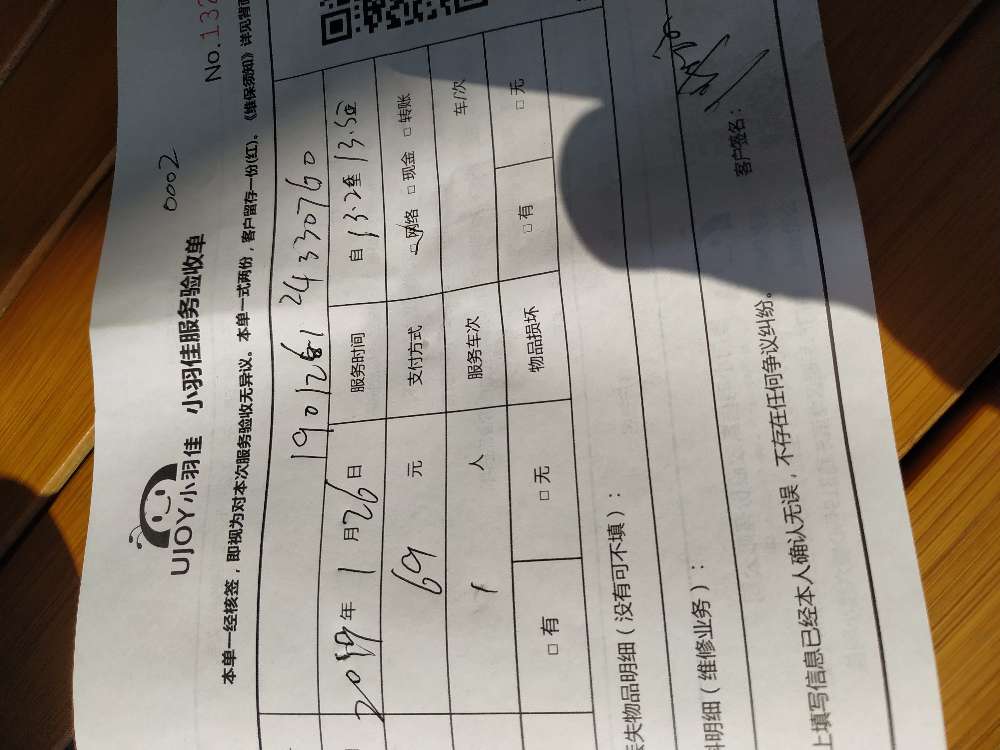 No.132
0002
UJOY小羽佳 小羽佳服务验收单
本单一经核签，即视为对本次服务验收无异议。本单一式两份，客户留存一份(红)。《维保须知》详见背面
24330760
年 1 月 26 日 服务时间 自 13.2 至 13.50
69 元 支付方式 □网络 □现金 □转账
1 人 服务车次 车/次
□有 □无 物品损坏 □有 □无
失物品明细（没有可不填）：
料明细（维修业务）：
客户签名：
上填写信息已经本人确认无误，不存在任何争议纠纷。